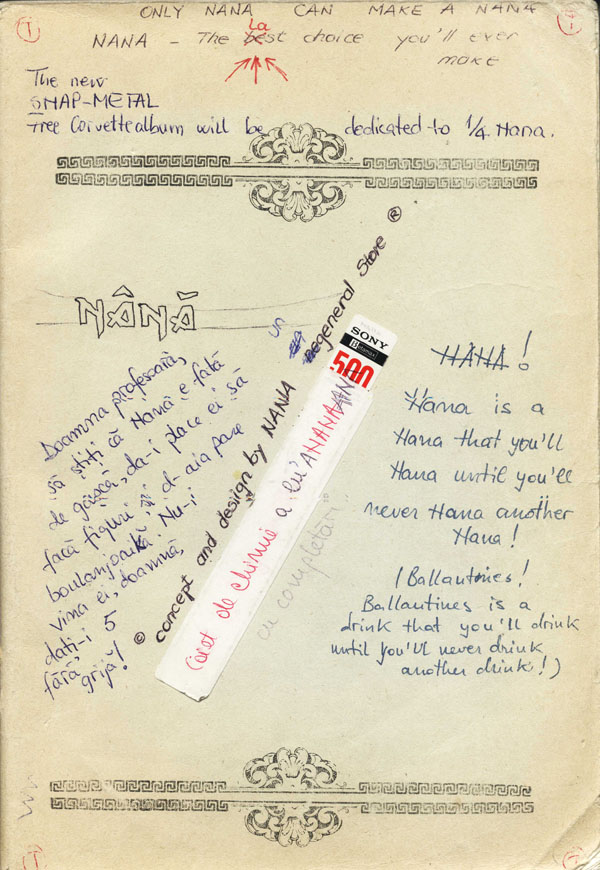 ONLY NANA CAN MAKE A NANA
la
NANA - The best choice you'll ever
make
The new
SNAP-METAL
Free Corvette album will be dedicated to 1/4 Nana.
NÂNĂ
Doamna profesoară,
să știți că Nană e fată
de gașcă, da-i place ei să
facă figuri și d-aia pare
boulanjorică. Nu-i
vina ei, doamnă,
dați-i 5
fără
grijă!
© concept and design by NANA
un
egeneral Store ®
SONY
500
Caiet de chimie a lu' ANANA
cu completări
NANA!
Nana is a
Nana that you'll
Nana until you'll
never Nana another
Nana!
(Ballantines!
Ballantines is a
drink that you'll drink
until you'll never drink
another drink!)